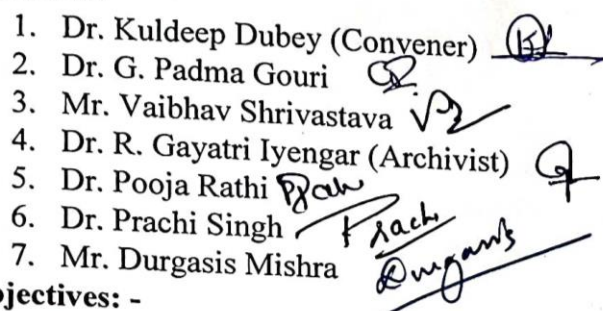 1. Dr. Kuldeep Dubey (Convener)
2. Dr. G. Padma Gouri
3. Mr. Vaibhav Shrivastava
4. Dr. R. Gayatri Iyengar (Archivist)
5. Dr. Pooja Rathi
6. Dr. Prachi Singh Prachi
7. Mr. Durgasis Mishra
jectives: -